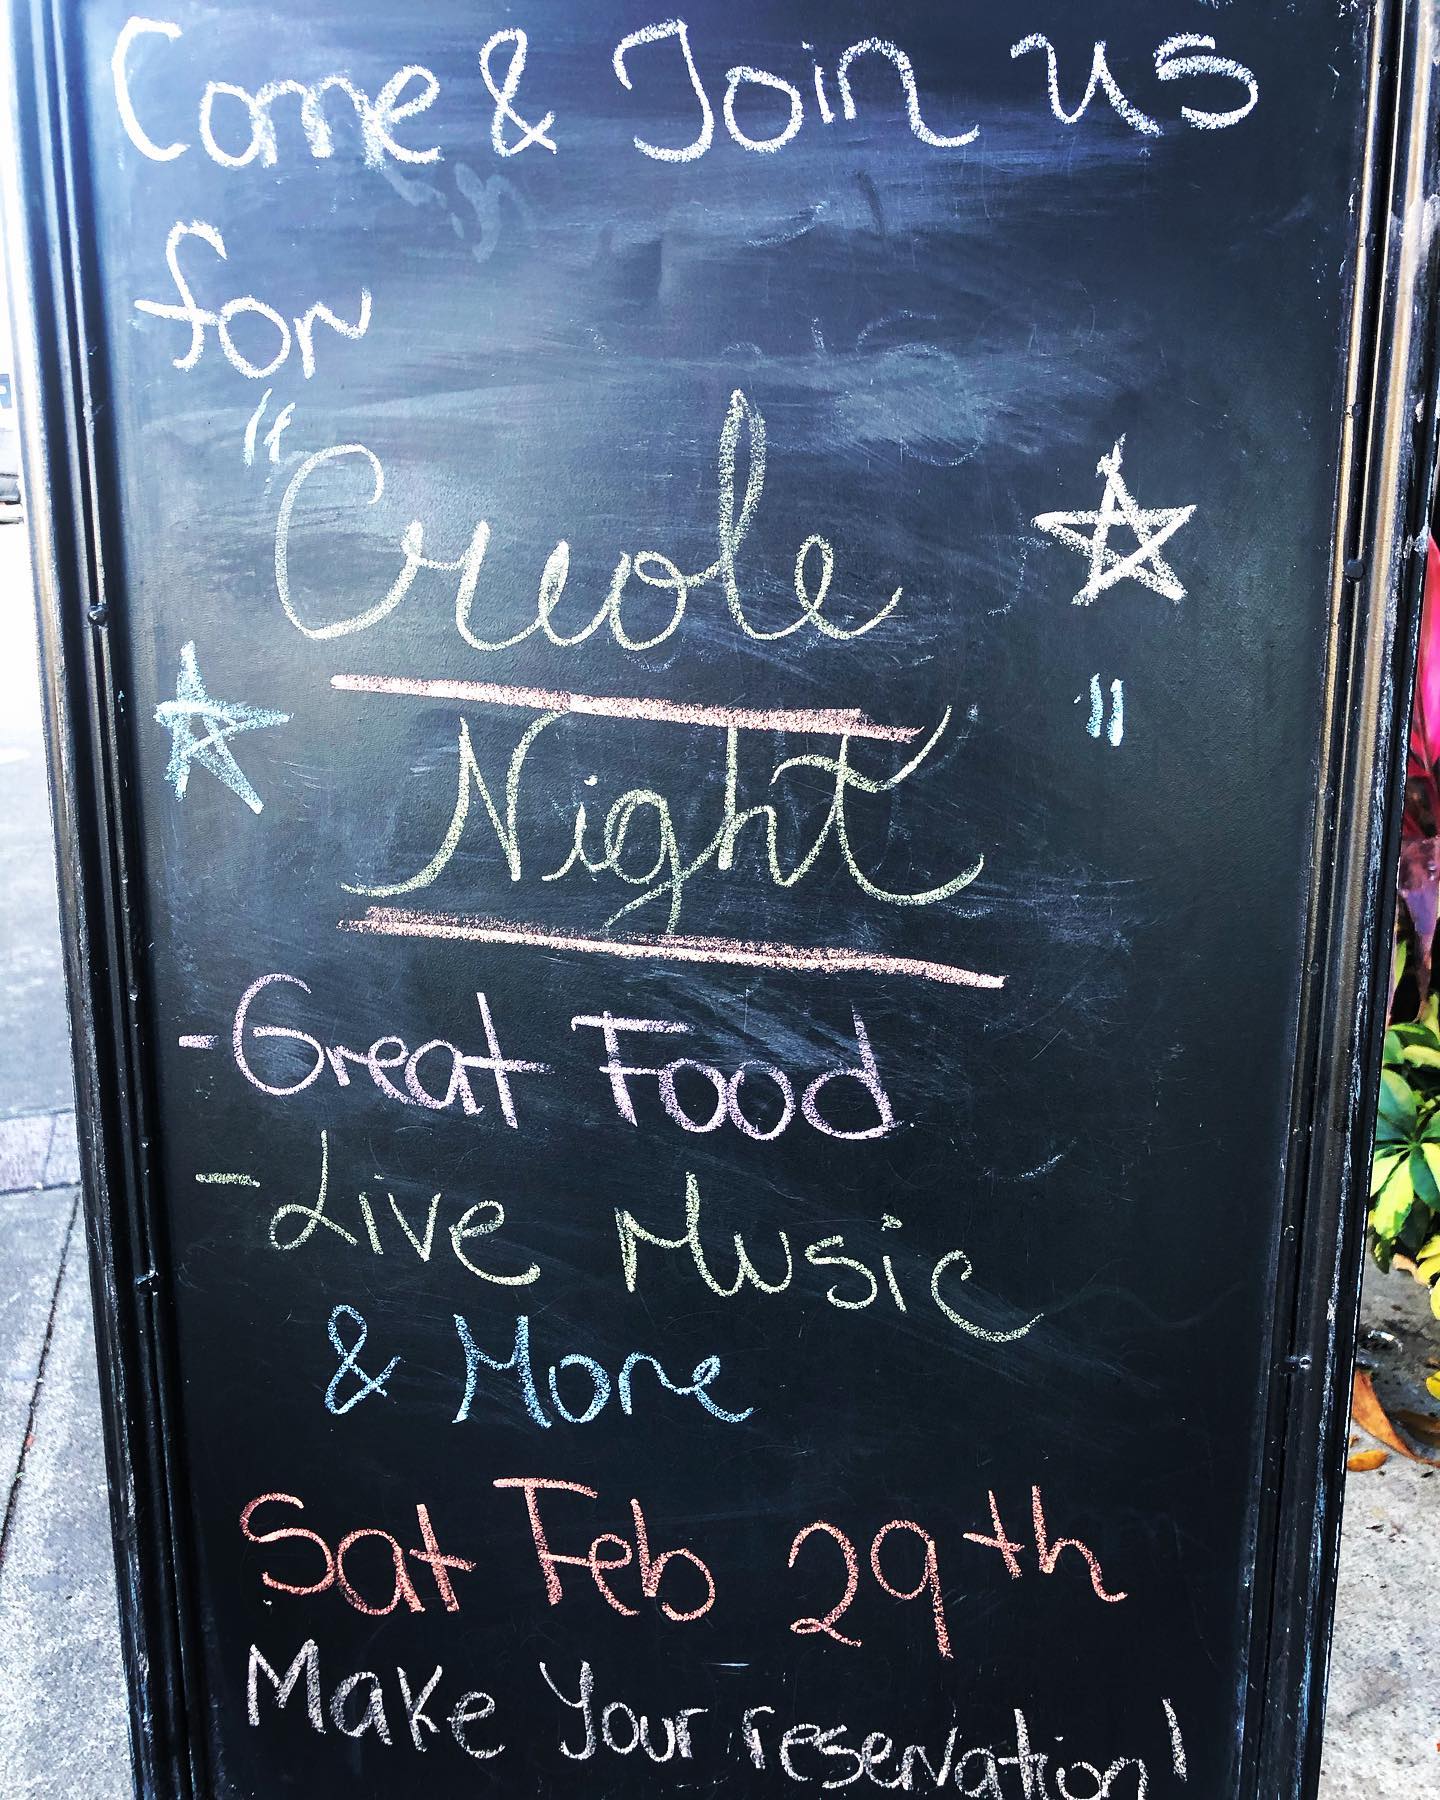 Come & Join us
for
"Creole
Night"
-Great Food
-Live Music
& More
Sat Feb 29th
Make Your reservation!